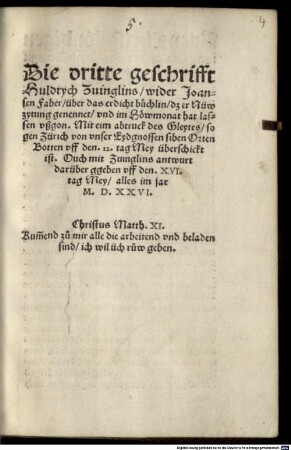 5.
4
Die dritte geschrifft
Huldrych Zuinglins / wider Joan-
sen Faber / über das erdicht büchlin / dz er Nüw
zytung genennet / vnd im Höwmonat hat las-
sen vßgon. Mit eim abtruck des Gleytes / so
gen Zürich von vnser Eydgnossen siben Orten
Botten vff den .12. tag Mey überschickt
ist. Ouch mit Zuinglins antwurt
darüber ggeben vff den .XVI.
tag Mey / alles im jar
M. D. XXVI.
Christus Matth. XI.
Kum̃end zů mir alle die arbeitend vnd beladen
sind / ich wil üch růw geben.